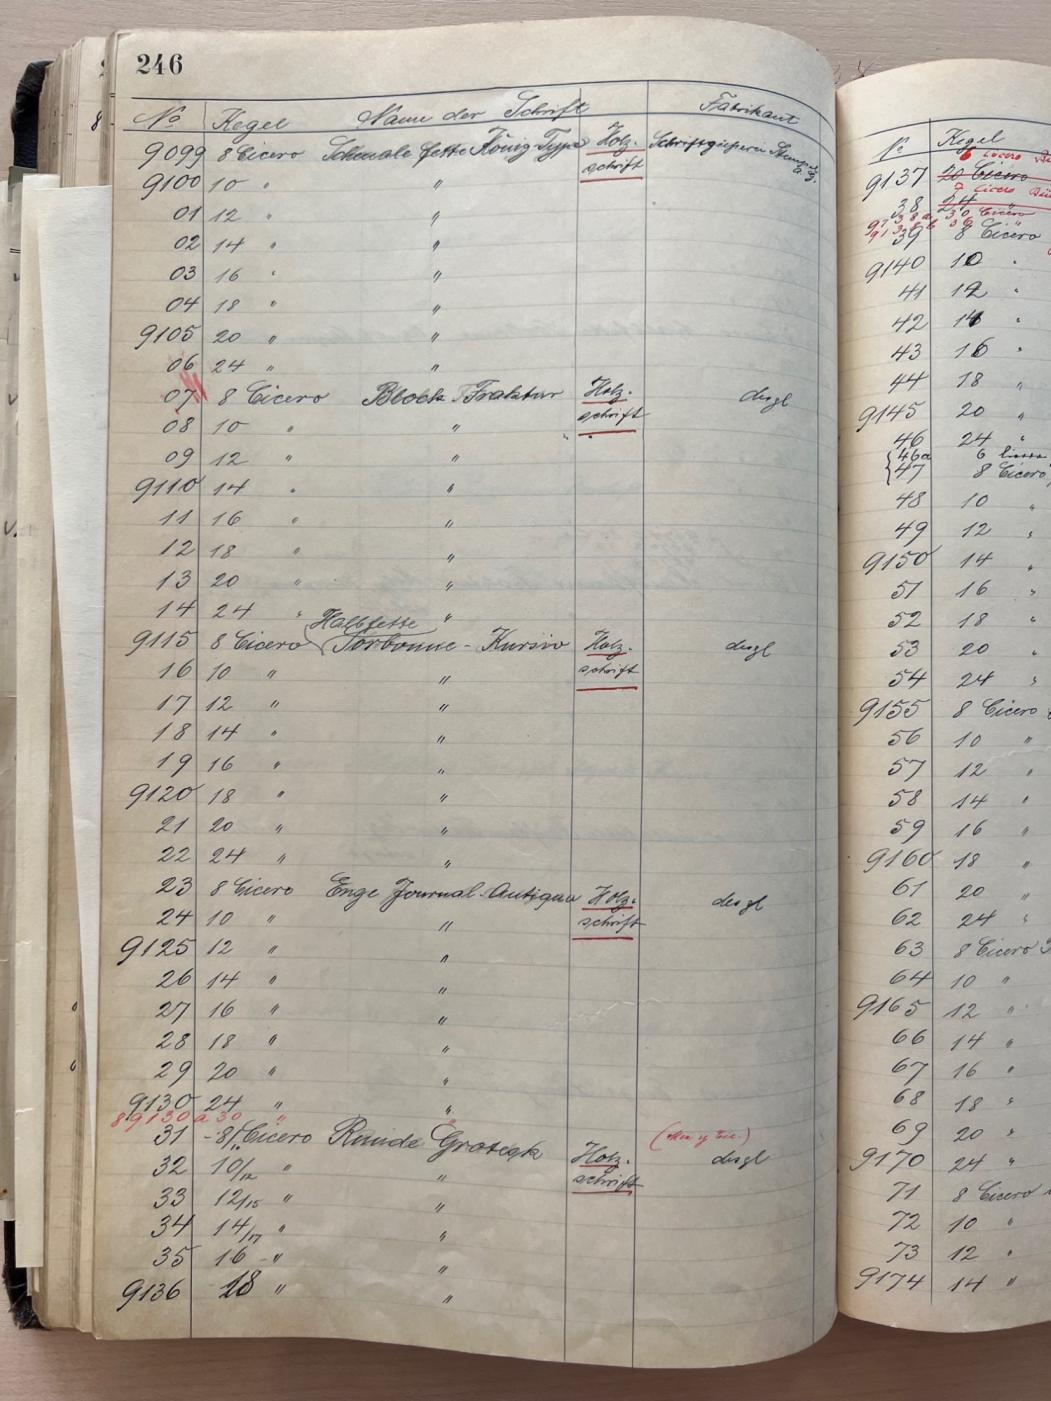 246
No Kegel Name der Schrift Fabrikant
9099 8 Cicero Schmale fette König-Type Holz- Schriftgießerei Stempel A. G.
9100 10 " " schrift
01 12 " "
02 14 " "
03 16 " "
04 18 " "
9105 20 " "
06 24 " "
07 8 Cicero Block Fraktur Holz- desgl
08 10 " " schrift
09 12 " "
9110 14 " "
11 16 " "
12 18 " "
13 20 " "
14 24 " "
Halbfette
9115 8 Cicero Sorbonne-Kursiv Holz- desgl
16 10 " " schrift
17 12 " "
18 14 " "
19 16 " "
9120 18 " "
21 20 " "
22 24 " "
23 8 Cicero Enge Journal-Antiqua Holz- desgl
24 10 " " schrift
9125 12 " "
26 14 " "
27 16 " "
28 18 " "
29 20 " "
9130 24 " "
9130a 30 " "
31 8/ Cicero Runde Grotesk Holz- desgl
32 10/12 " " schrift
33 12/15 " "
34 14/17 " "
35 16 " "
9136 18 " "
No Kegel
6 Cicero
9137 20 Cicero
7 Cicero
38 24 "
9138a 30 Cicero
36 "
39 8 Cicero
9140 10 "
41 12 "
42 14 "
43 16 "
44 18 "
9145 20 "
46 24 "
46a 6 Cicero
47 8 Cicero
48 10 "
49 12 "
9150 14 "
51 16 "
52 18 "
53 20 "
54 24 "
9155 8 Cicero
56 10 "
57 12 "
58 14 "
59 16 "
9160 18 "
61 20 "
62 24 "
63 8 Cicero
64 10 "
9165 12 "
66 14 "
67 16 "
68 18 "
69 20 "
9170 24 "
71 8 Cicero
72 10 "
73 12 "
9174 14 "